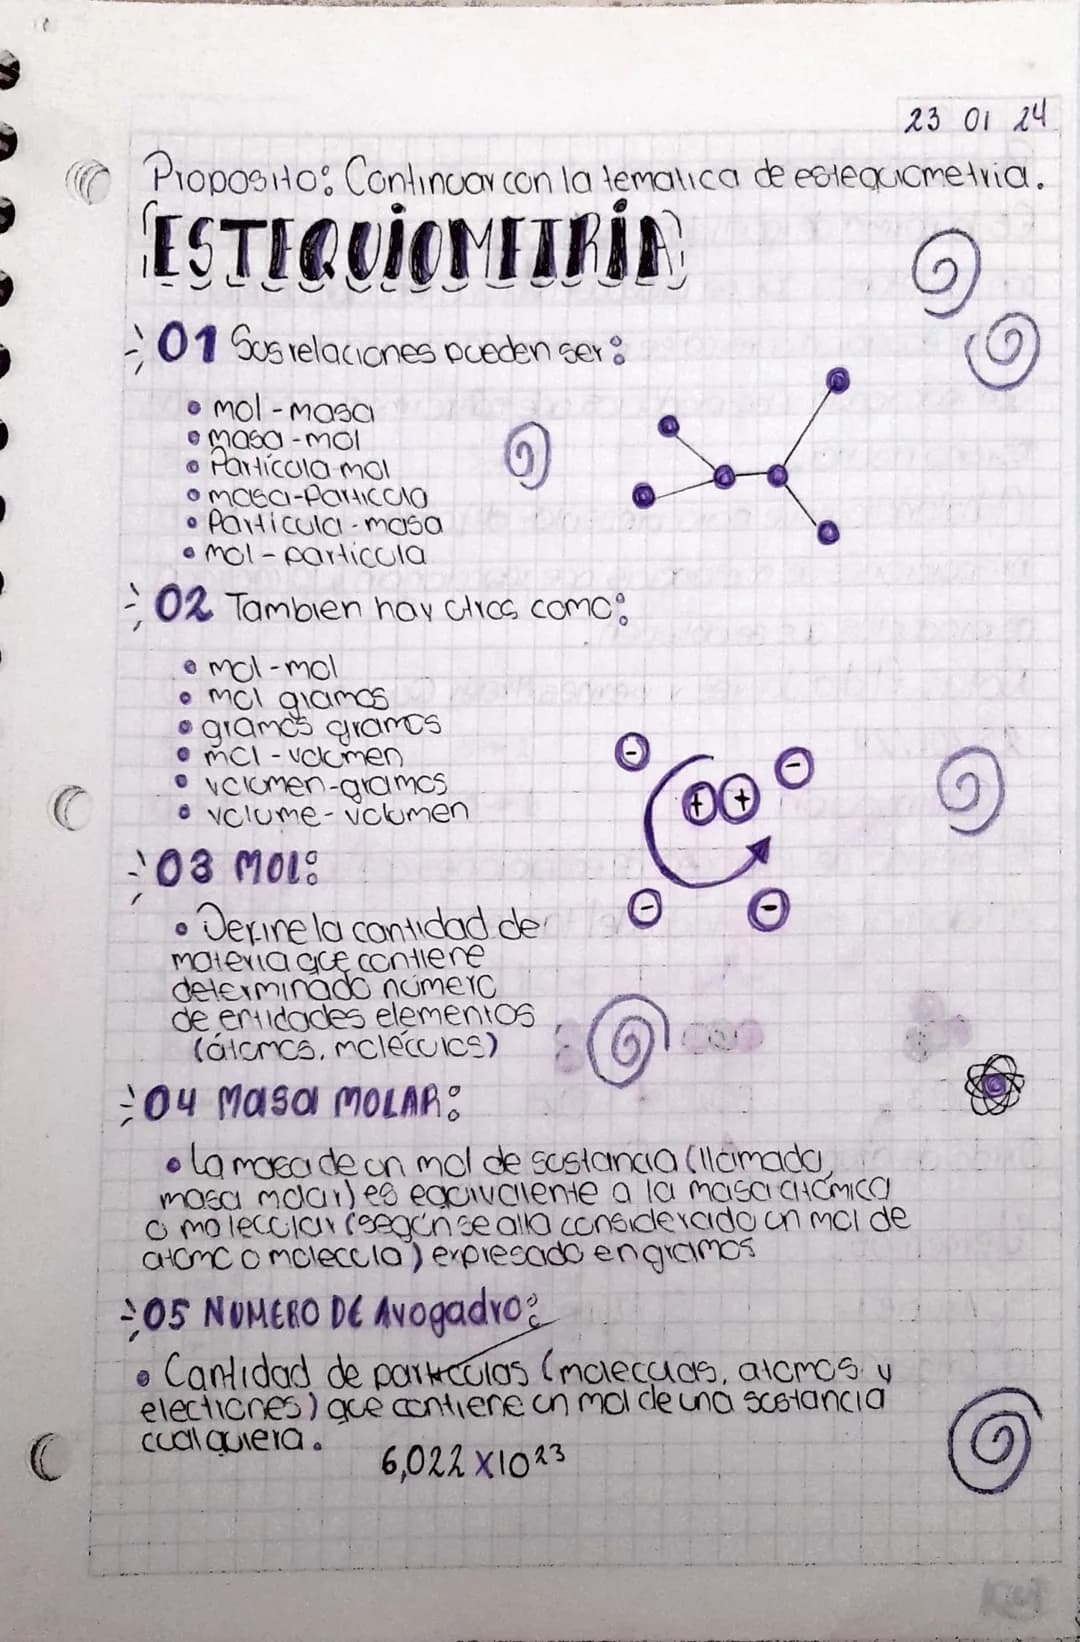 23 01 24
Proposito: Continuar con la tematica de estequiometria.
ESTEQUIOMETRIA
01 Sus relaciones pueden ser:
• mol - masa
• masa - mol
• Partícula-mol
• masa-Particula
• Partícula - masa
• mol - particula
02 Tambien hay otros como:
• mol - mol
• mol gramos
• gramos gramos
• mol - volumen
• volumen-gramos
• volume - volumen
03 MOL:
• Define la cantidad de
materia que contiene
determinado número
de entidades elementos
(átomos, moléculas)
04 Masa MOLAR:
• La masa de un mol de sustancia (llamada
masa molar) es equivalente a la masa atómica
o molecular (según se alla considerado un mol de
atomo o molecula) expresado en gramos
05 NUMERO DE Avogadro:
• Cantidad de particulas (moleculas, atomos y
electrones) que contiene un mol de una sustancia
cualquiera.
6,022 x10 23